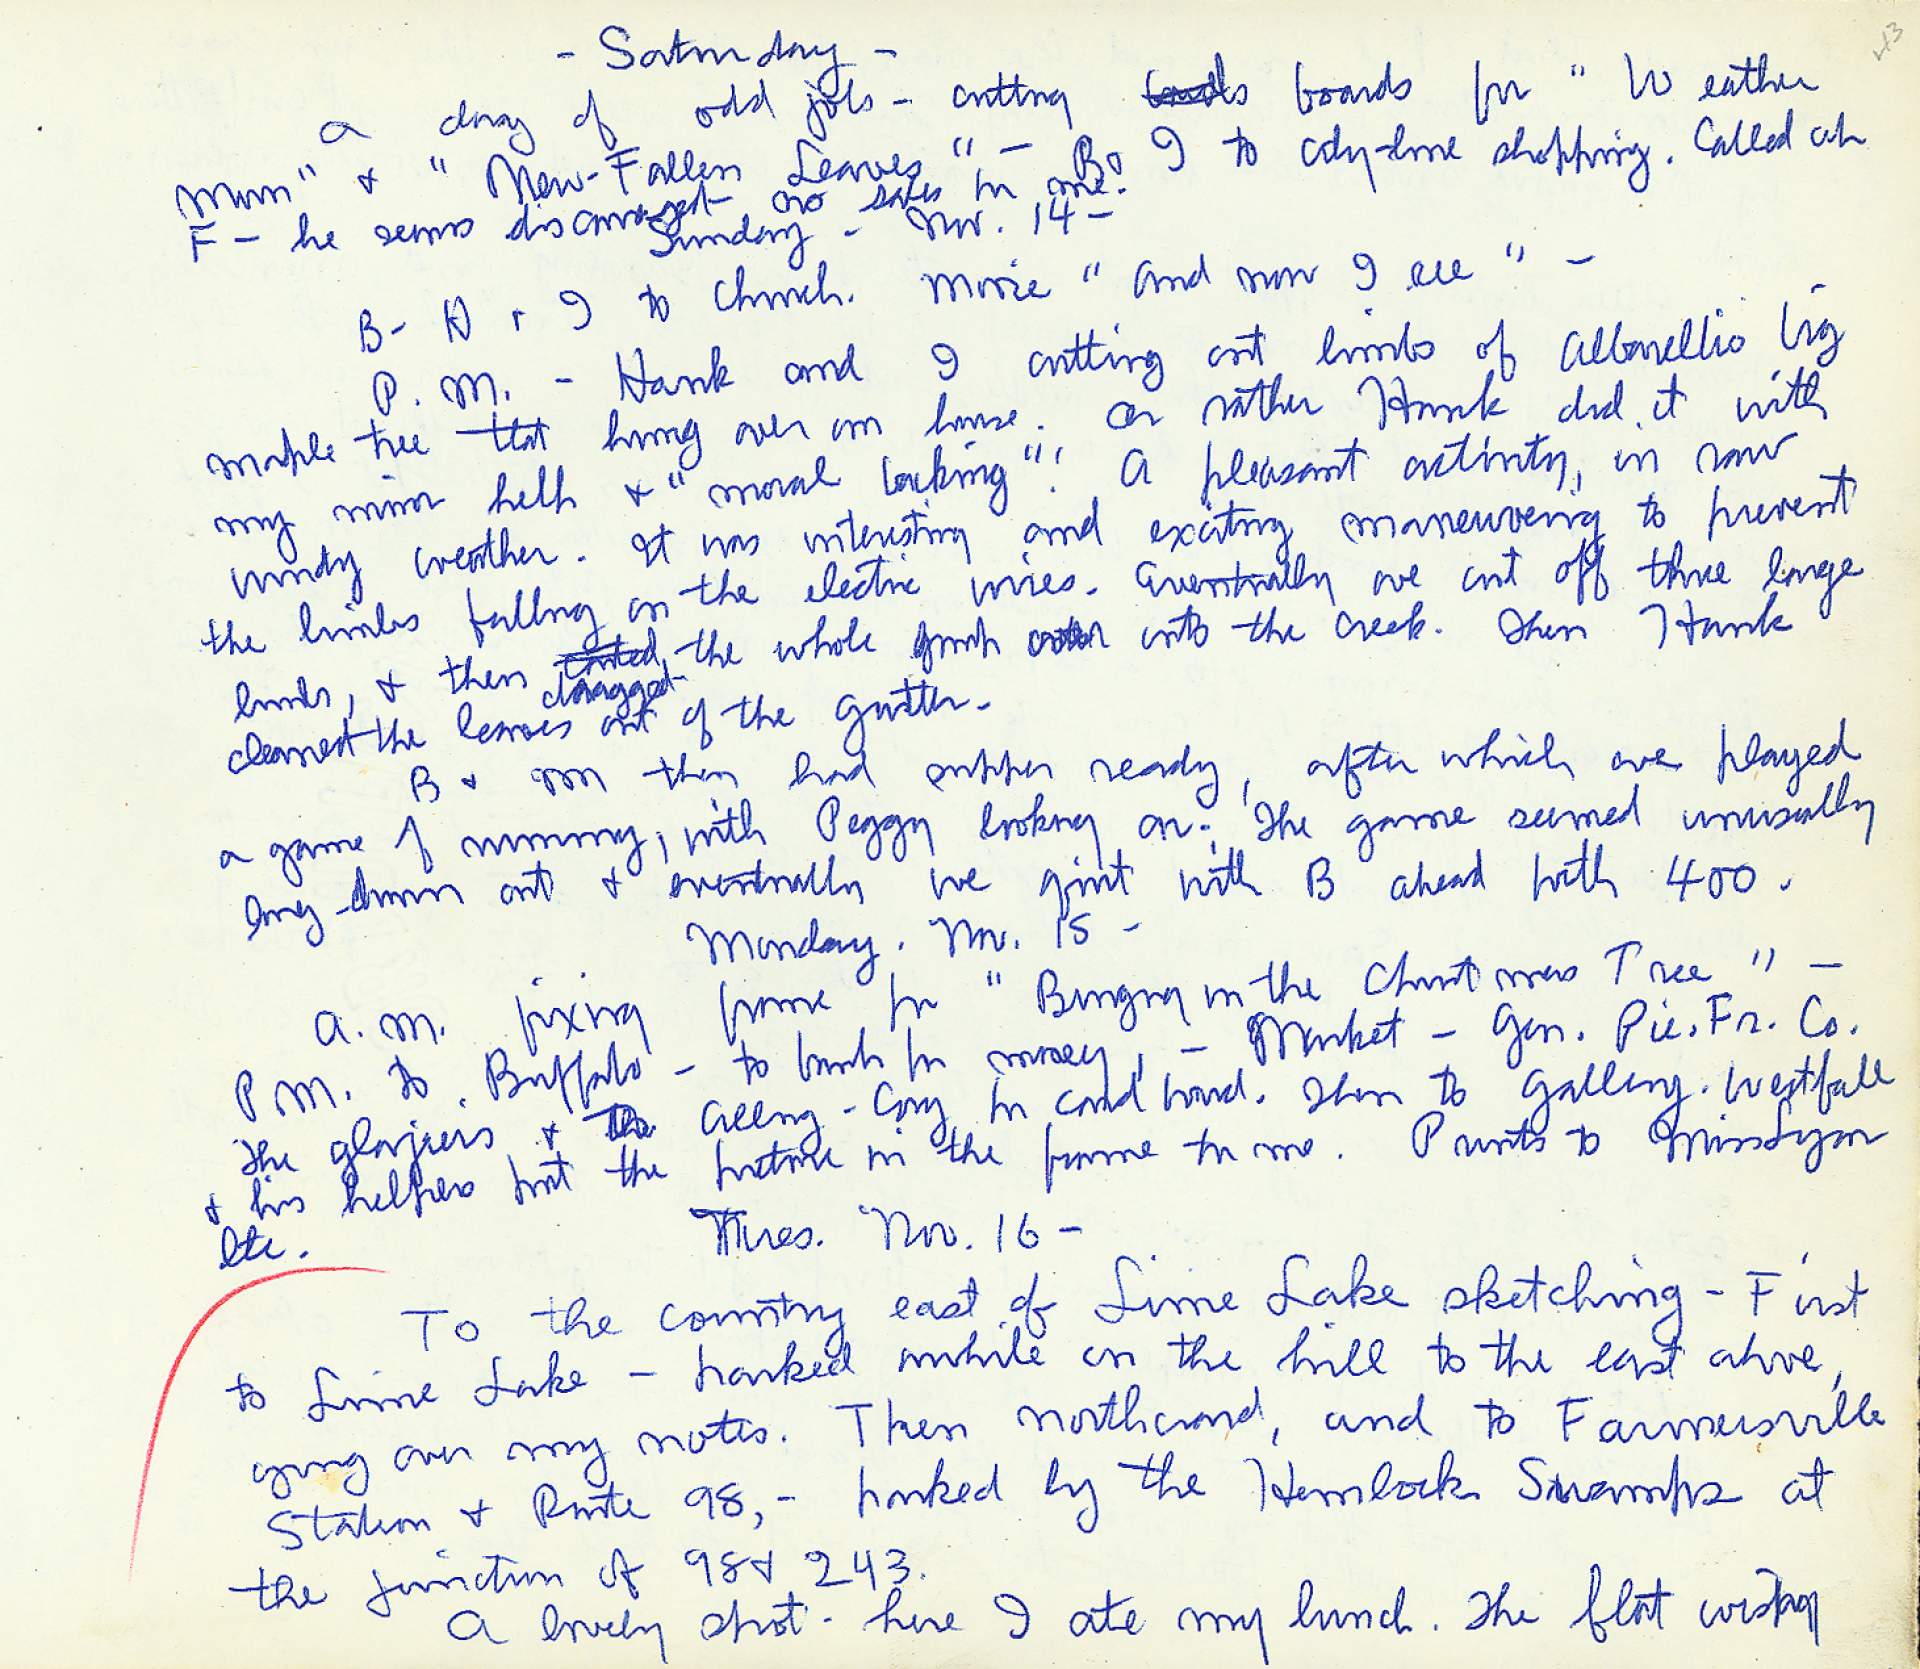 43
- Saturday -
A day of odd jobs - cutting boards for "Weather
Moon" & "New-Fallen Leaves" - B & I to city-line shopping. Called on
F - he seems discouraged no sales for me.
Sunday - Nov. 14 -
B - H & I to church. Movie "And now I see" -
P.M. - Hank and I cutting out limbs of Albarellio big
maple tree that hung over our house. Or rather Hank did it with
my minor help & "moral backing"! A pleasant activity, in raw
windy weather. It was interesting and exciting maneuvering to prevent
the limbs falling on the electric wires. Eventually we cut off three large
limbs, & then dragged the whole into the creek. Then Hank
cleaned the leaves out of the gutter.
B & M then had supper ready, after which we played
a game of rummy, with Peggy looking on. The game seemed unusually
long-drawn out & eventually we quit with B ahead with 400.
Monday. Nov. 15 -
A.M. fixing frame for "Bringing in the Christmas Tree" -
P.M. to Buffalo - to bank for money, - Market - Gen. Pic. Fr. Co.
The glaziers & Alling-Cory for card board. Then to Gallery. Westfall
& his helpers put the picture in the frame for me. Prints to Miss Lyon
etc.
Tues. Nov. 16 -
To the country east of Lime Lake sketching - First
to Lime Lake - parked awhile on the hill to the east above,
going over my notes. Then northward, and to Farmersville
Station & Route 98, - parked by the Hemlock Swamps at
the junction of 98 & 243.
A lovely spot - here I ate my lunch. The flat